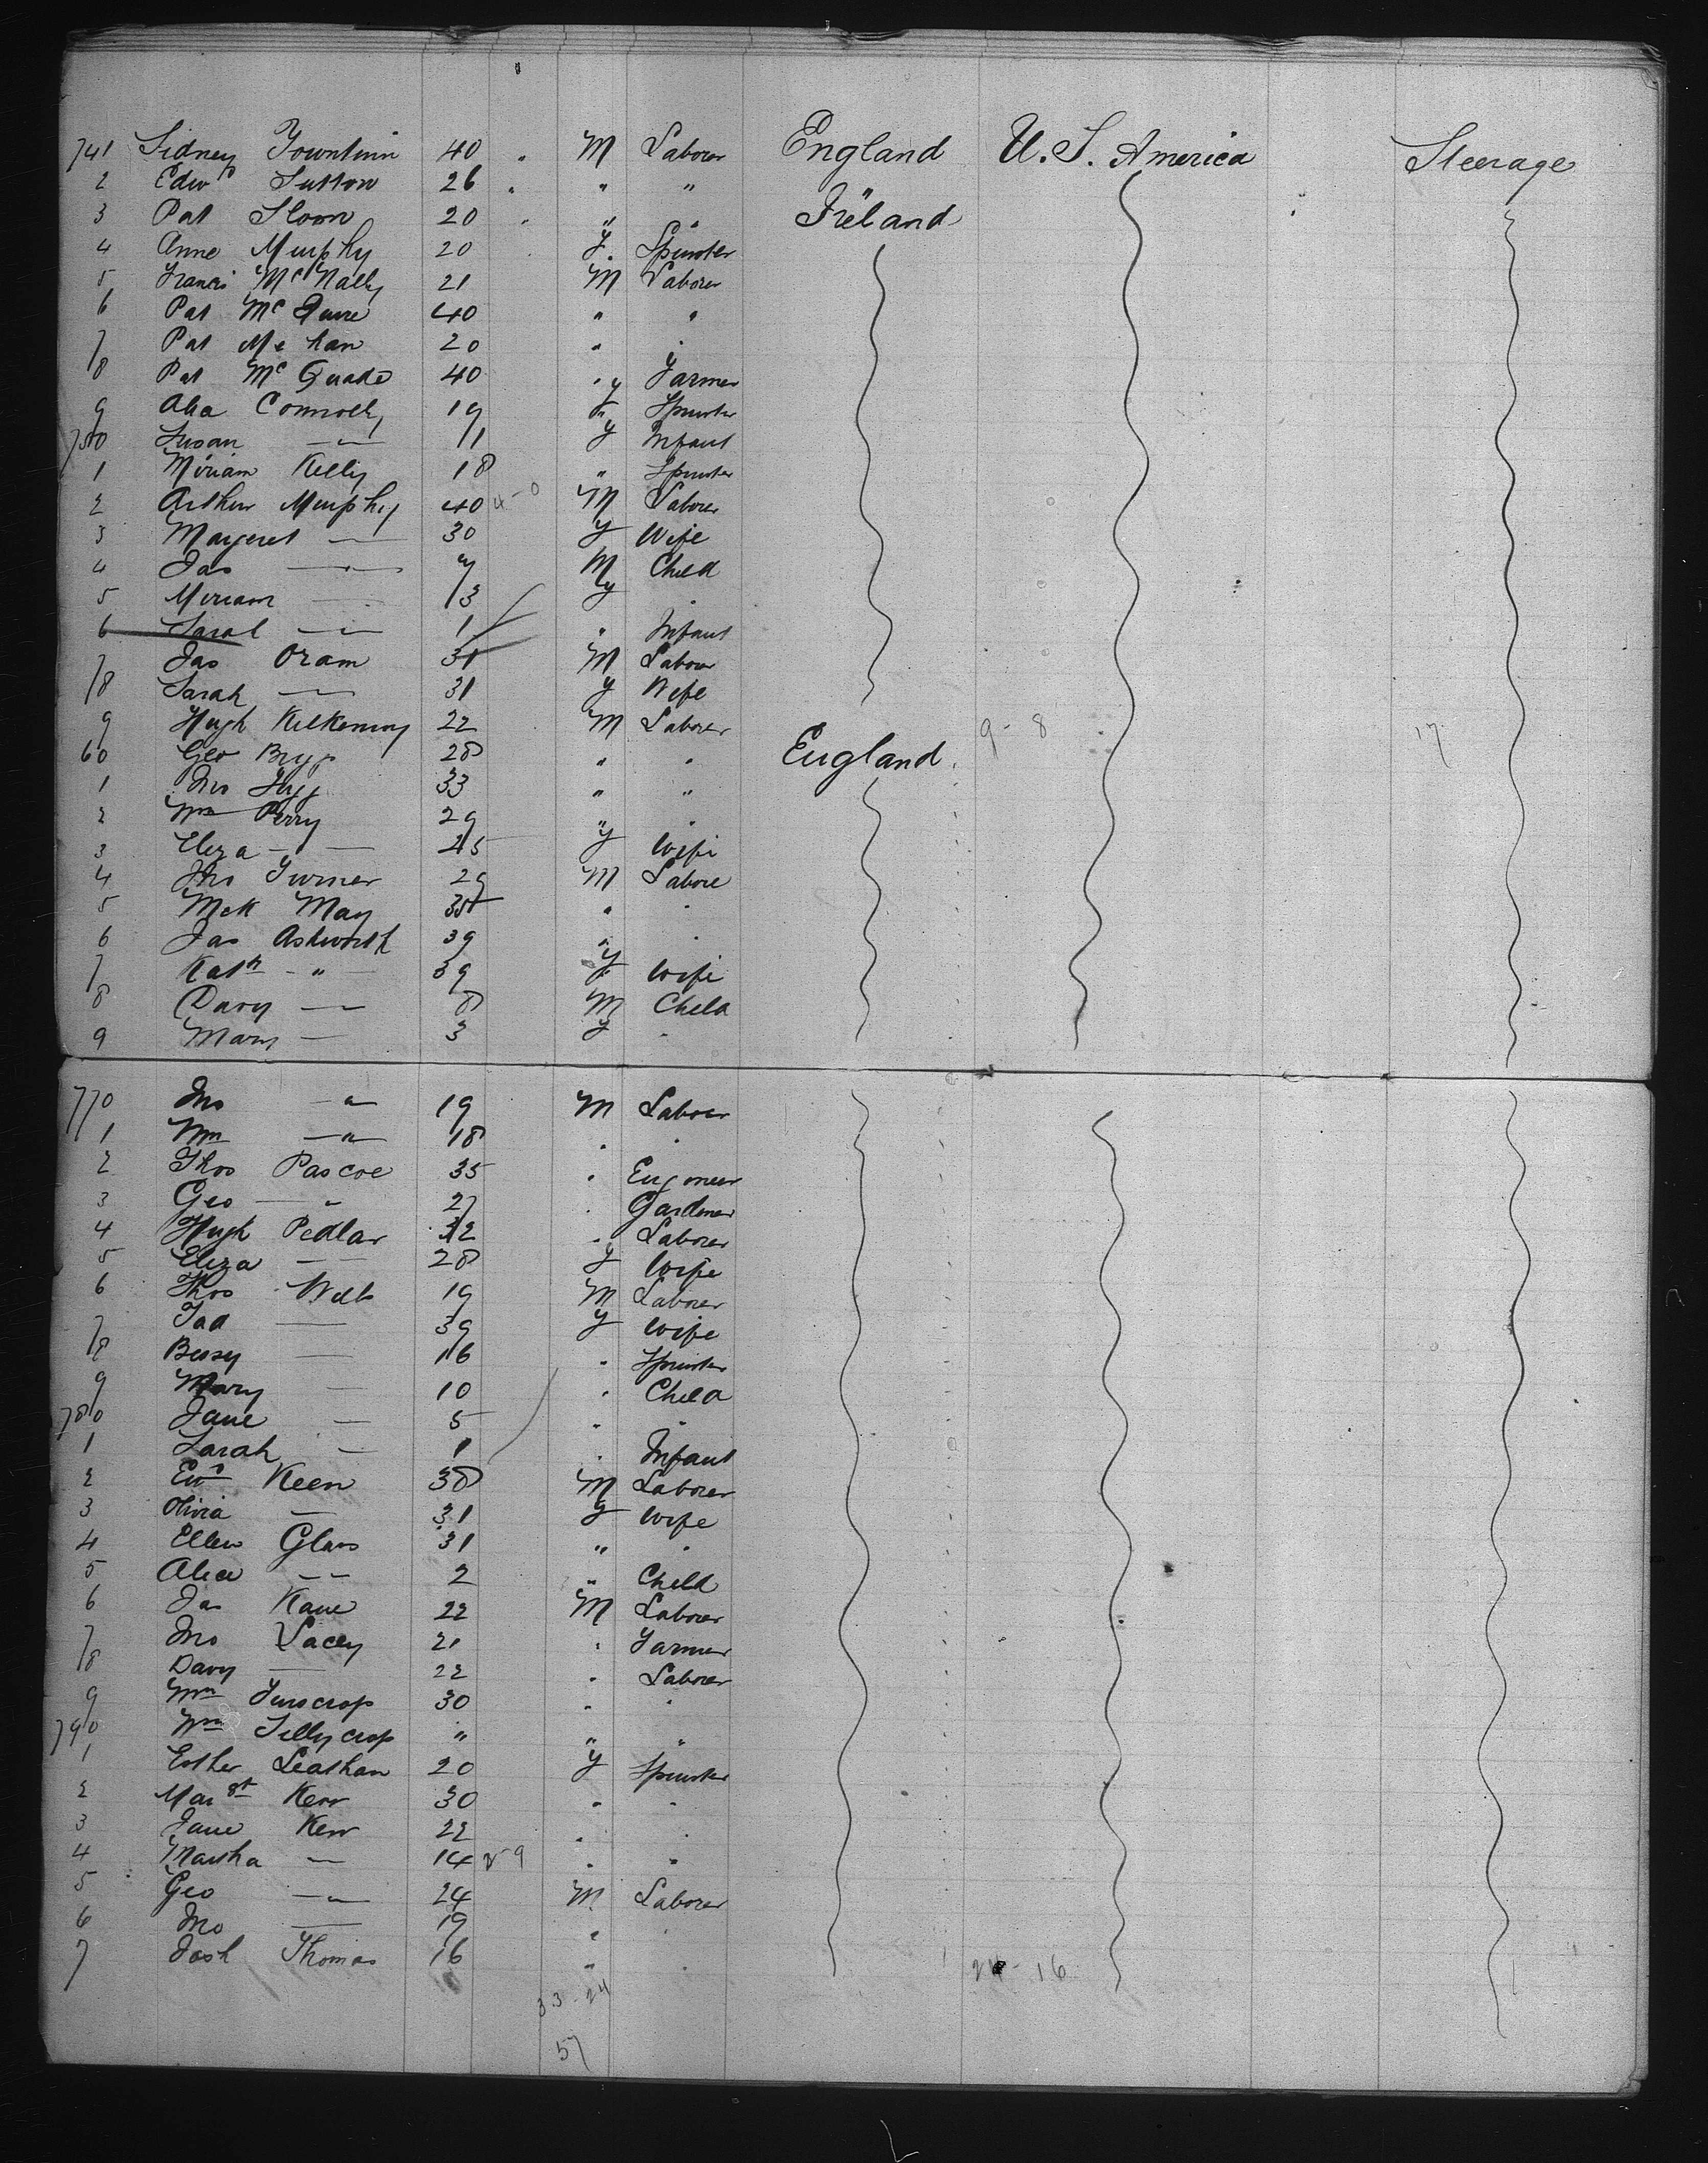 741 Sidney Townlinn 40 M Laborer England U. S. America Steerage
2 Edwd Sutton 26 " "
3 Pat Sloan 20 " " Ireland
4 Anne Murphy 20 F. Spinster
5 Francis McNally 21 M Laborer
6 Pat McGuire 40 " "
7 Pat Mehan 20 "
8 Pat McQuade 40 " Farmer
9 Alia Connolly 19 F Spinster
750 Susan — " — 11 F Infant
1 Miriam Kelly 18 " Spinster
2 Arthur Murphy 40 M Laborer
3 Margeret — 30 F Wife
4 Jas — " — 7 M Child
5 Miriam — 13 F "
6 Sarah — " — 1 " Infant
7 Jas Oram 31 M Labour
8 Sarah — 31 F Wife
9 Hugh Kilkenny 22 M Laborer 9 - 8 17
60 Geo 28 " " England
1 Jno 33 " "
2 Wm Perry 29 " "
3 Eliza - " — 25 F Wife
4 Jno Turner 29 M Labore
5 May 35 " "
6 Jas Ashworth 39 " "
7 Kath - " — 39 F Wife
8 Davy — " — 8 M Child
9 Mary — 3 F "
770 Jno — " — 19 M Laborer
1 Wm — " — 18 " "
2 Thos Pascoe 35 " Engineer
3 Geo — " 27 " Gardener
4 Hugh Pedlar 32 " Laborer
5 Eliza — 28 F Wife
6 Thos Webb 19 M Laborer
7 — 39 F Wife
8 Bessy — 16 " Spinster
9 Mary — 10 " Child
780 Jane — 5 " "
1 Sarah — 1 " Infant
2 Keen 38 M Laborer
3 Olivia — 31 F Wife
4 Ellen Glass 31 " "
5 Alice — 2 " Child
6 Jas Kane 22 M Laborer
7 Jno Lacey 21 " Farmer
8 Davy — 22 " Laborer
9 Wm 30 " "
790 Wm Tillycrop " " "
1 Esther Leathan 20 F Spinster
2 Margt Kerr 30 " "
3 Jane Kerr 22 " "
4 Martha — 14 " "
5 Geo — " — 24 M Laborer
6 Jno — 19 " "
7 Josh Thomas 16 " "
33 - 24
57